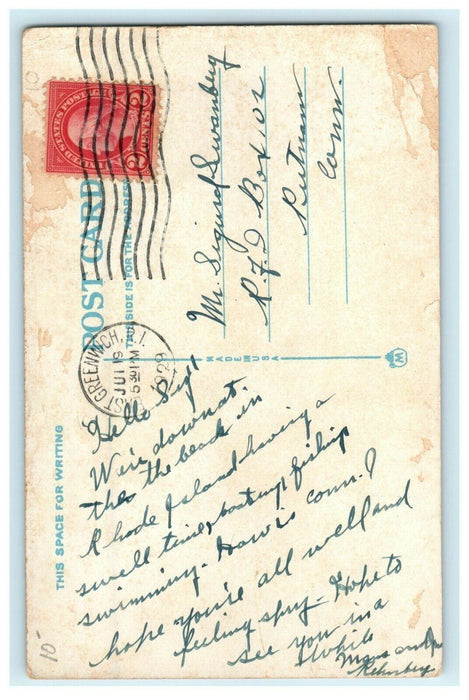 10
UNITED STATES POSTAGE
2 CENTS 2
POST CARD
THIS SIDE IS FOR THE ADDRESS
EAST GREENWICH, R.I.
JUL 19
5 30 PM
1929
Mr. Sigurd Swanberg
R.F.D Box 102
Putnam
Conn.
MADE IN USA
M
THIS SPACE FOR WRITING
Hello Sig!
We're down at
the the beach in
Rhode Island having a
swell time, boating fishing
swimming. How is conn.?
hope you're all well and
feeling spry. Hope to
see you in a
while
10